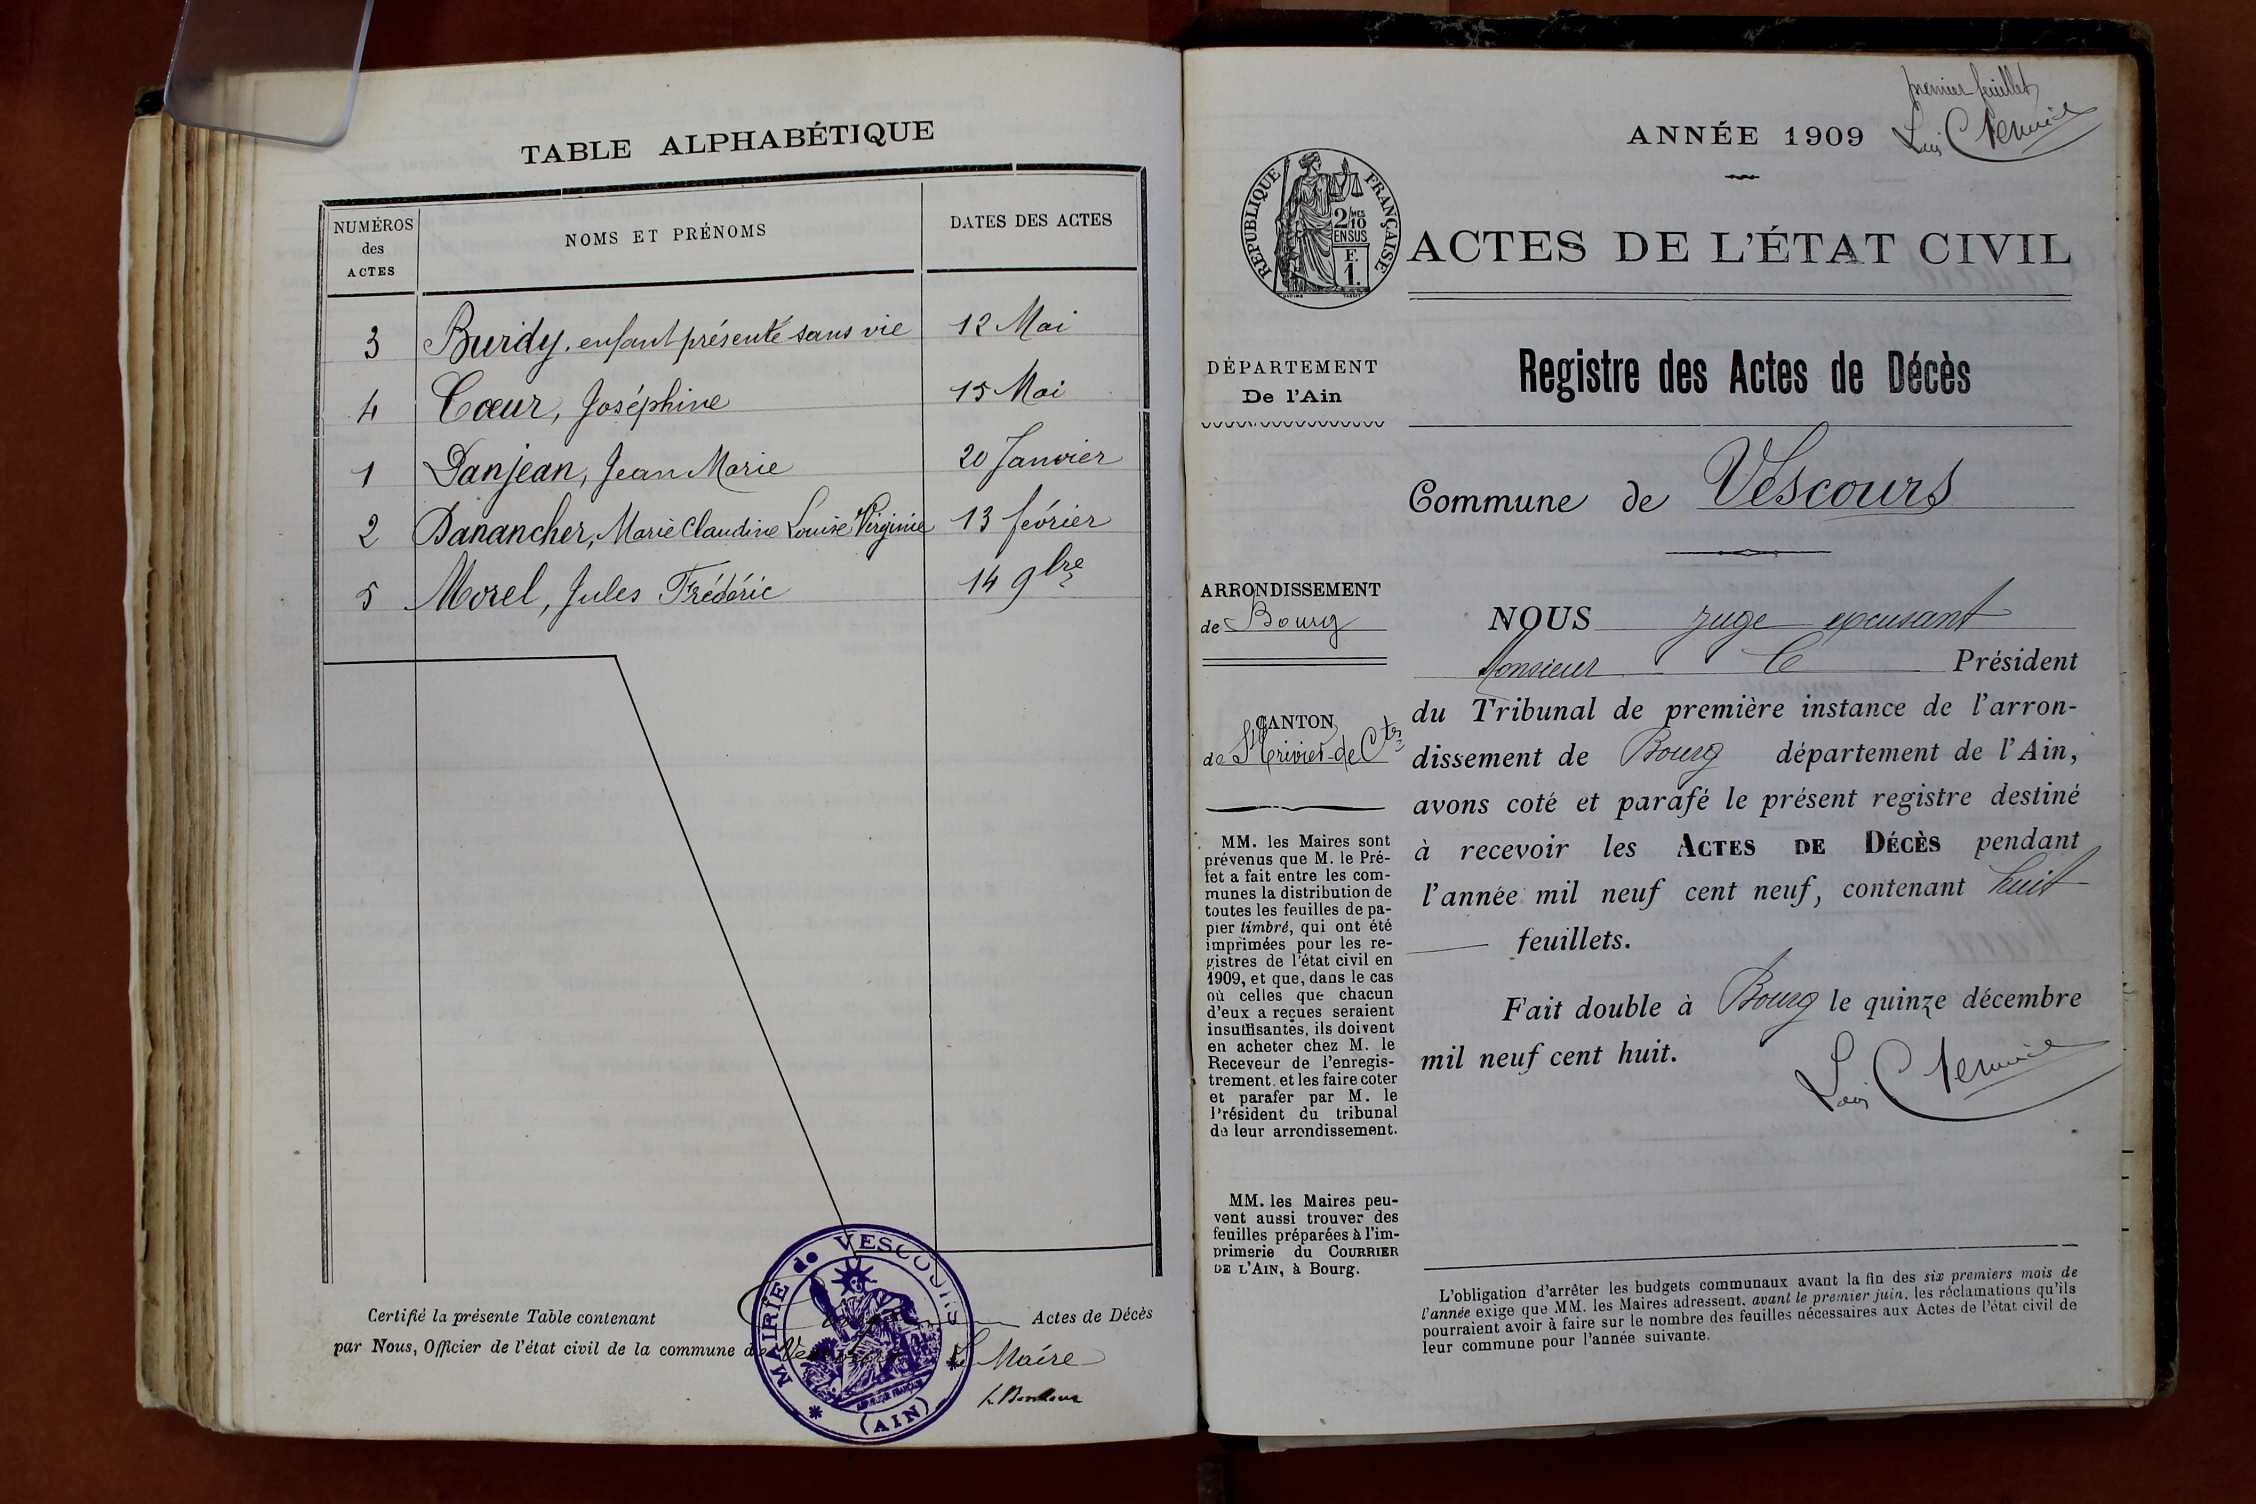 TABLE ALPHABÉTIQUE
NUMÉROS
des
ACTES
NOMS ET PRÉNOMS
DATES DES ACTES
3 Burdy, enfant présenté sans vie 12 Mai
4 Cœur, Joséphine 15 Mai
1 Danjean, Jean Marie 20 Janvier
2 Danancher, Marie Claudine Louise Virginie 13 février
5 Morel, Jules Frédéric 14 9bre
Certifié la présente Table contenant Actes de Décès
par Nous, Officier de l'état civil de la commune de Vescours Le Maire
MAIRIE de VESCOURS
(AIN)
premier feuillet
ANNÉE 1909
RÉPUBLIQUE FRANÇAISE
2/10 MES
EN SUS
F.
1.
ACTES DE L'ÉTAT CIVIL
DÉPARTEMENT
De l'Ain
ARRONDISSEMENT
de Bourg
CANTON
de St Trivier-de-Ctes
MM. les Maires sont
prévenus que M. le Pré-
fet a fait entre les com-
munes la distribution de
toutes les feuilles de pa-
pier timbré, qui ont été
imprimées pour les re-
gistres de l'état civil en
1909, et que, dans le cas
où celles que chacun
d'eux a reçues seraient
insuffisantes, ils doivent
en acheter chez M. le
Receveur de l'enregis-
trement, et les faire coter
et parafer par M. le
Président du tribunal
de leur arrondissement.
MM. les Maires peu-
vent aussi trouver des
feuilles préparées à l'im-
primerie du COURRIER
DE L'AIN, à Bourg.
Registre des Actes de Décès
Commune de Vescours
NOUS juge excusant
Monsieur le Président
du Tribunal de première instance de l'arron-
dissement de Bourg département de l'Ain,
avons coté et parafé le présent registre destiné
à recevoir les ACTES DE DÉCÈS pendant
l'année mil neuf cent neuf, contenant huit
feuillets.
Fait double à Bourg le quinze décembre
mil neuf cent huit.
L'obligation d'arrêter les budgets communaux avant la fin des six premiers mois de
l'année exige que MM. les Maires adressent, avant le premier juin, les réclamations qu'ils
pourraient avoir à faire sur le nombre des feuilles nécessaires aux Actes de l'état civil de
leur commune pour l'année suivante.